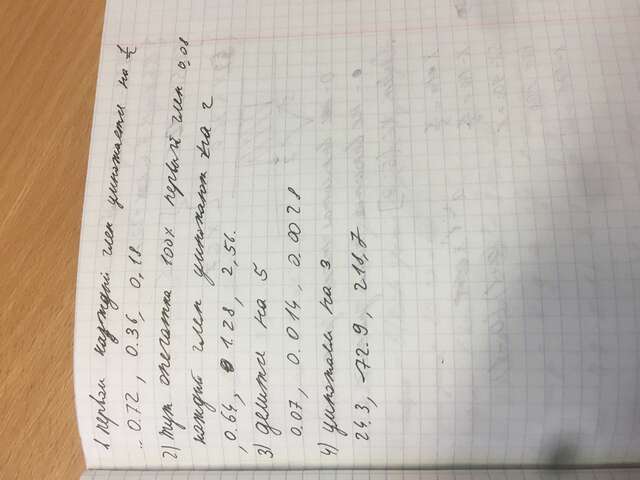 1. первом каждый член умножается на 1/2
.. 0.72, 0.36, 0,18
2) тут опечатка 100% первый член 0,08
каждый член умножают на 2
, 0.64, 1.28, 2,56.
3) делится на 5
0.07, 0.014, 0.0028
4) умножаем на 3
24.3, 72.9, 218,7